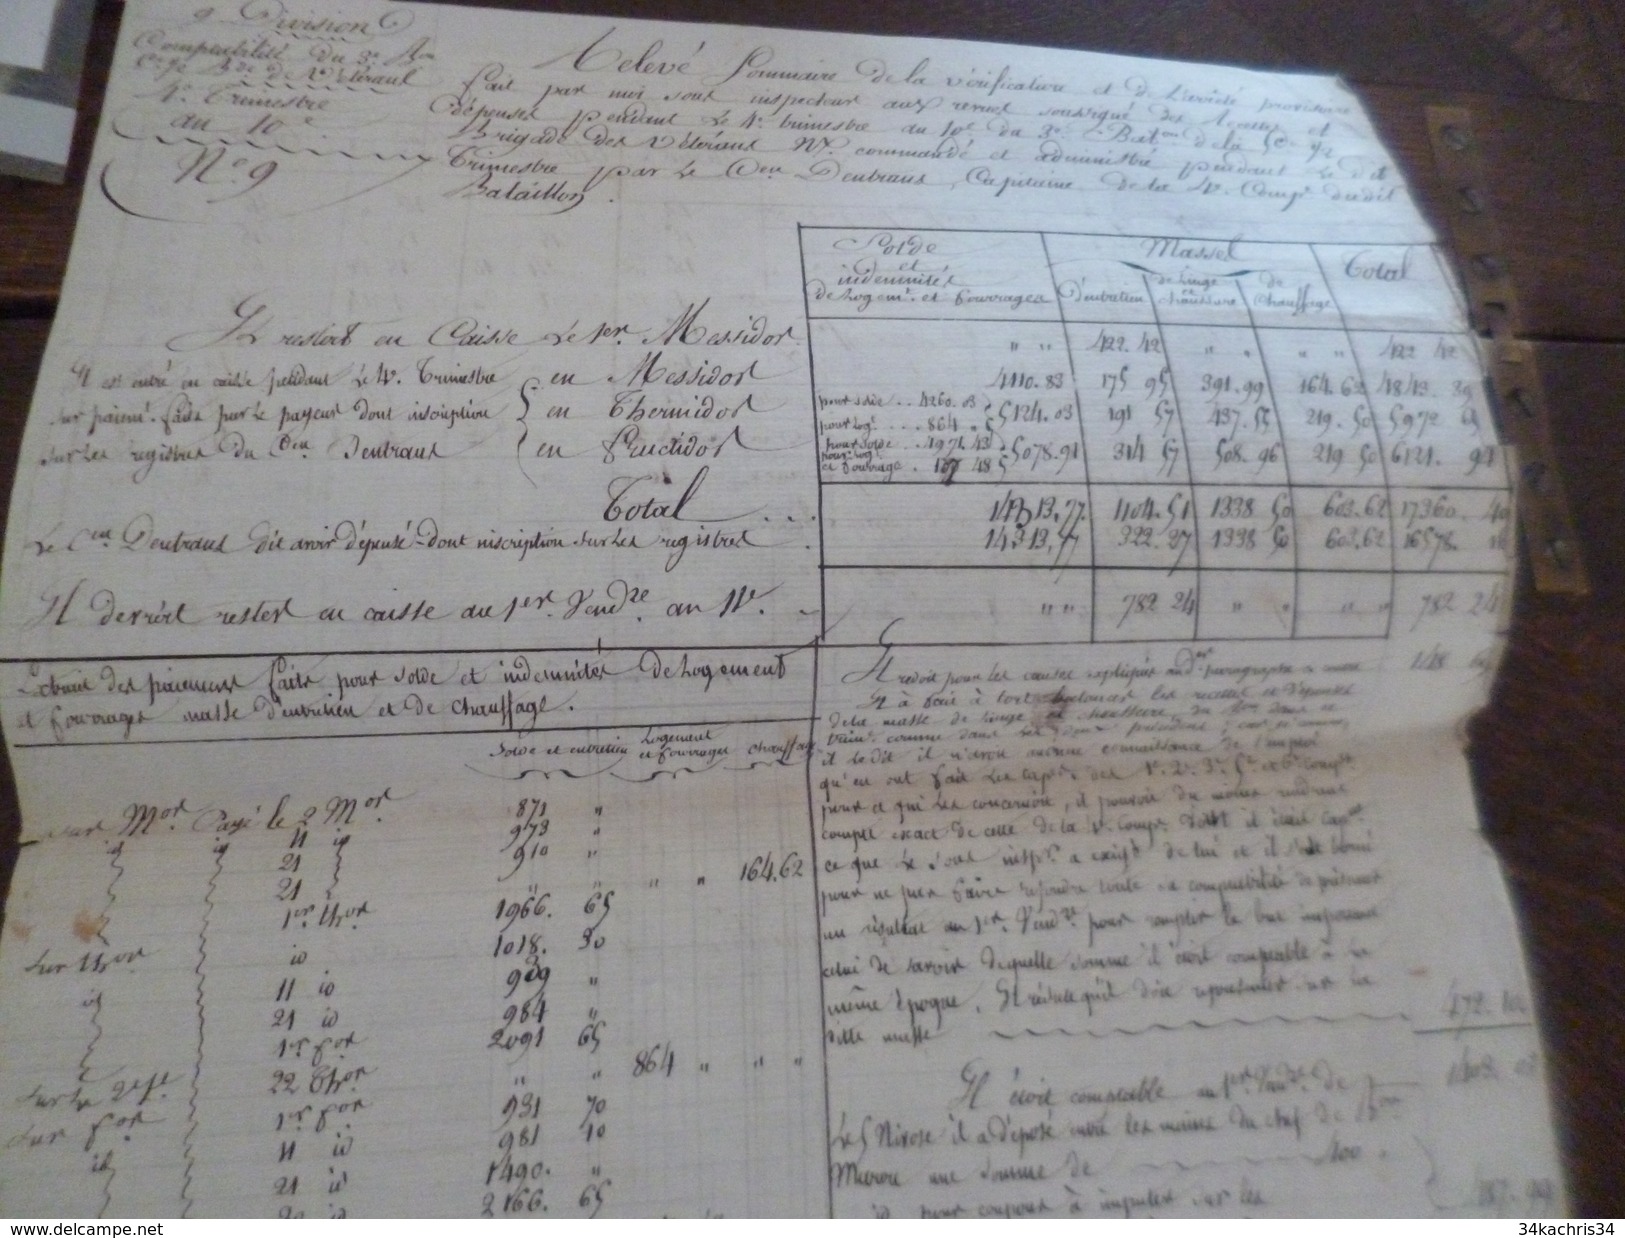 9 Division
Comptabilité du 3e Bon
de Vétérans
4e Trimestre
an 10e
No 9
Relevé Sommaire de la vérification et de l'arrêté provisoire
fait par moi sous inspecteur aux revues soussigné des Recettes et
dépenses pendant le 4e trimestre an 10e du 3e Baton de la 5e 1/2
Brigade des Vétérans Nx commandé et administré pendant le dit
Trimestre par le Cen Dentraus, Capitaine de la 4e Compe dudit
Bataillon.
Solde et indemnités de Logemt et fourrages
Masses
d'entretien
de Linge et chaussure
de chauffage
Total
Il restoit en Caisse le 1er Messidor " " 422.42 " " " " 422 42
Il est entré en caisse pendant le 4e Trimestre en Messidor 4110.83 175 95 391.99 164.62 4843. 39
sur paiemt faits par le payeur dont inscription en Thermidor pour solde .. 4260.03 pour Logt ... 864 " 5124.03 191 57 437.55 219.50 5972 65
sur les registres du Cen Dentraus en Fructidor pour solde . 4971.43 pour Logt et fourrage . 107 48 5078.91 314 57 508.96 219 50 6121. 94
Total ... 14313.77 1104.51 1338 50 603.62 17360. 40
Le Cen Dentraus dit avoir dépensé dont inscription sur les registres 14313.77 322.27 1338 50 603.62 16578. 16
Il devroit rester en caisse au 1er Vendre an 11e. " " 782 24 " " " " 782 24
Extrait des paiemens faits pour solde et indemnités de Logement
et fourrages masse d'entretien et de chauffage.
Solde et entretien
Logement et fourrages
chauffage
sur Mor Payé le 2 Mor 871 "
id id 11 id 973 "
21 910 "
21 " " " " 164.62
1er thor 1966. 65
sur thor id 1018. 30
11 id 939 "
id 21 id 984 "
1er for 2091 65
22 thor " " 864 " " "
sur for 1er for 931 70
11 id 981 10
id 21 id 1490. "
2166. 65
Il redoit pour les causes expliquées paragraphe 148
Il a fait à tort balancer les recettes et dépenses
de la masse de linge et chaussure du Bon dans ce
trime comme dans les deux précédens, car si comme
il le dit il n'avoit aucune connaissance de l'emploi
qu'en ont fait les capes des 1e 2e 3e 5e et 6e Compe
pour ce qui les concernoit, il pouvoit du moins rendre
compte exact de celle de la 4e Compe dont il étoit cape
ce que le sous inspr a exigé de lui et il s'est borné
pour ne pas faire refondre toute sa comptabilité de présenter
un résultat au 1er Vendre pour remplir le but important
celui de savoir de quelle somme il étoit comptable à la
même époque. Il résulte qu'il doit représenter sur la
dite masse 472.
Il étoit comptable au 1er Vendre de 1403
Le 5 Nivose il a déposé entre les mains du chef de Bon
une somme de 400.
id pour coupons à imputer sur les
delcampe.net
34kachris34